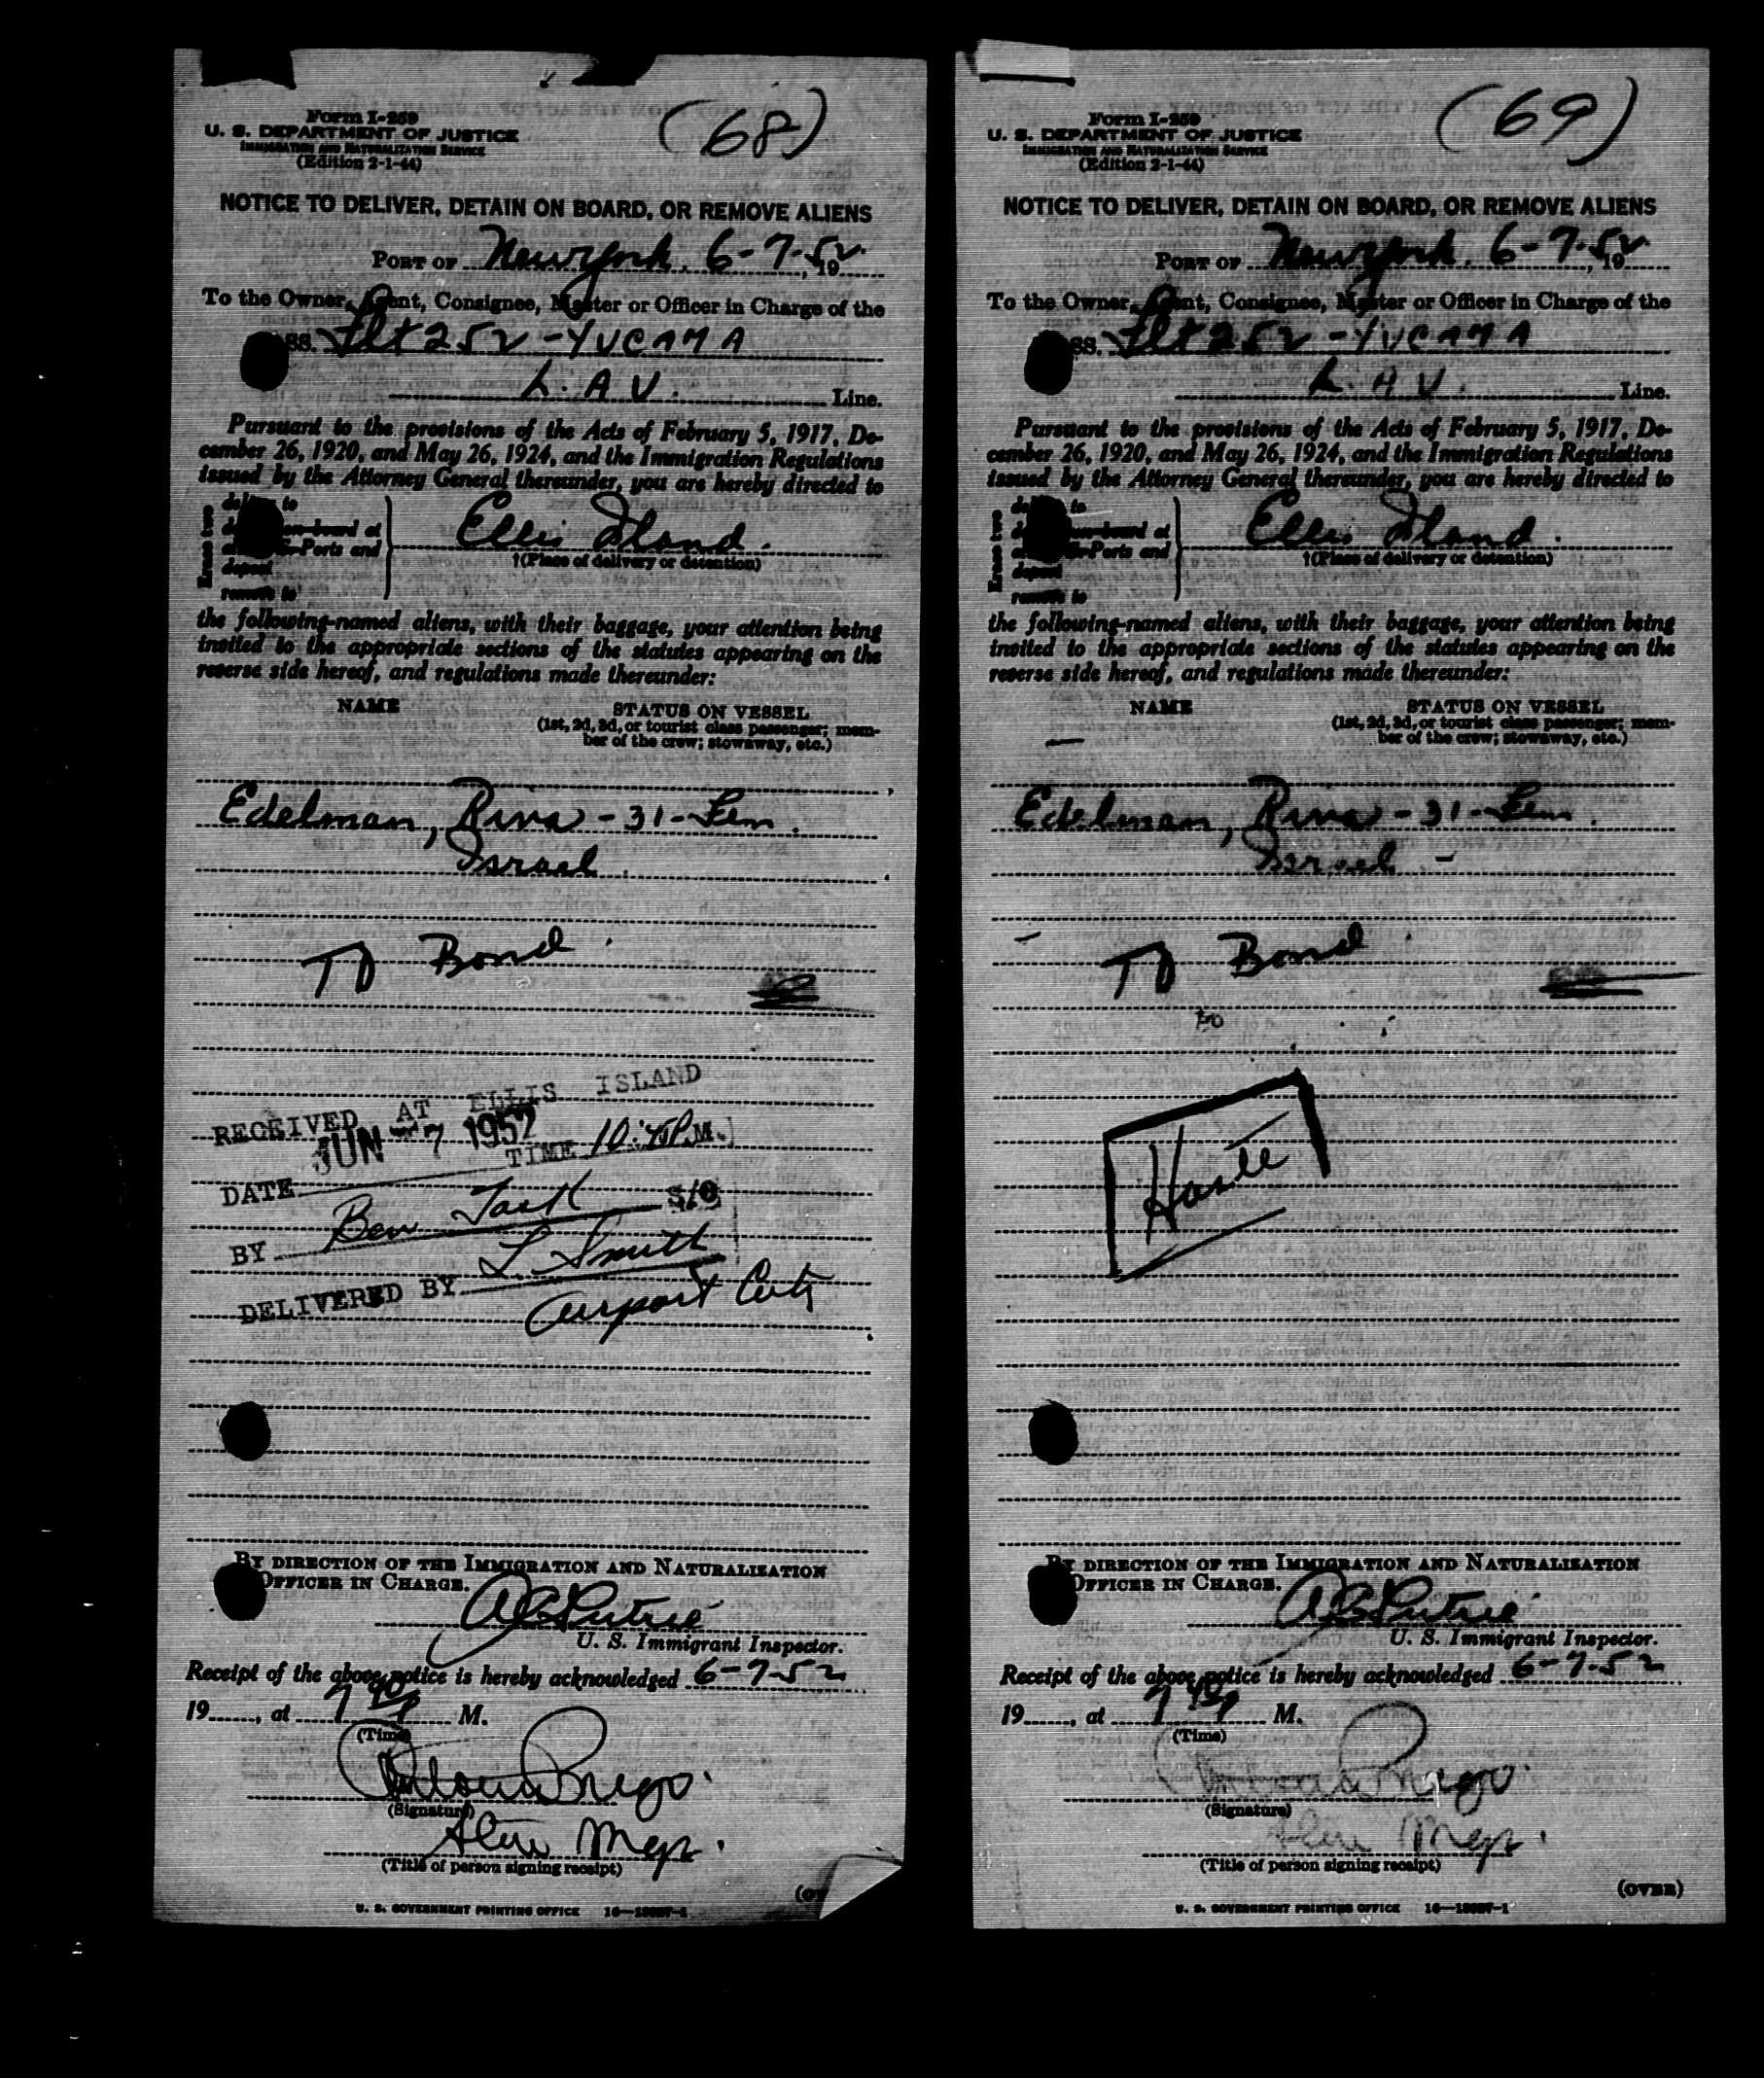 (68)
Form I-259
U. S. DEPARTMENT OF JUSTICE
IMMIGRATION AND NATURALIZATION SERVICE
(Edition 2-1-44)
NOTICE TO DELIVER, DETAIN ON BOARD, OR REMOVE ALIENS
PORT OF New York, 6-7-52, 19
To the Owner, Agent, Consignee, Master or Officer in Charge of the
SS. Flt 252 - YVCAMA
L. A. V. Line.
Pursuant to the provisions of the Acts of February 5, 1917, De-
cember 26, 1920, and May 26, 1924, and the Immigration Regulations
issued by the Attorney General thereunder, you are hereby directed to
Erase two
to
on board at
Ports and
deport
remove to
Ellis Island.
†(Place of delivery or detention)
the following-named aliens, with their baggage, your attention being
invited to the appropriate sections of the statutes appearing on the
reverse side hereof, and regulations made thereunder:
NAME
STATUS ON VESSEL
(1st, 2d, 3d, or tourist class passenger; mem-
ber of the crew; stowaway, etc.)
Edelman, Riva - 31 - Fem.
Israel.
Bond.
RECEIVED AT ELLIS ISLAND
JUN -7 1952
DATE TIME 10: P.M.
BY Ben S/O
DELIVERED BY L. Smith
Airport
BY DIRECTION OF THE IMMIGRATION AND NATURALIZATION
OFFICER IN CHARGE.
U. S. Immigrant Inspector.
Receipt of the above notice is hereby acknowledged 6-7-52
19, at 7 M.
(Time)
(Signature)
Mgr.
(Title of person signing receipt)
(OV
U. S. GOVERNMENT PRINTING OFFICE
(69)
Form I-259
U. S. DEPARTMENT OF JUSTICE
IMMIGRATION AND NATURALIZATION SERVICE
(Edition 2-1-44)
NOTICE TO DELIVER, DETAIN ON BOARD, OR REMOVE ALIENS
PORT OF New York, 6-7-52, 19
To the Owner, Agent, Consignee, Master or Officer in Charge of the
SS. Flt 252 - YVCAMA
L. A. V. Line.
Pursuant to the provisions of the Acts of February 5, 1917, De-
cember 26, 1920, and May 26, 1924, and the Immigration Regulations
issued by the Attorney General thereunder, you are hereby directed to
Erase two
to
on board at
Ports and
deport
remove to
Ellis Island.
†(Place of delivery or detention)
the following-named aliens, with their baggage, your attention being
invited to the appropriate sections of the statutes appearing on the
reverse side hereof, and regulations made thereunder:
NAME
STATUS ON VESSEL
(1st, 2d, 3d, or tourist class passenger; mem-
ber of the crew; stowaway, etc.)
Edelman, Riva - 31 - Fem.
Israel -
Bond
BY DIRECTION OF THE IMMIGRATION AND NATURALIZATION
OFFICER IN CHARGE.
U. S. Immigrant Inspector.
Receipt of the above notice is hereby acknowledged 6-7-52
19, at 7 M.
(Time)
(Signature)
Mgr.
(Title of person signing receipt)
(OVER)
U. S. GOVERNMENT PRINTING OFFICE